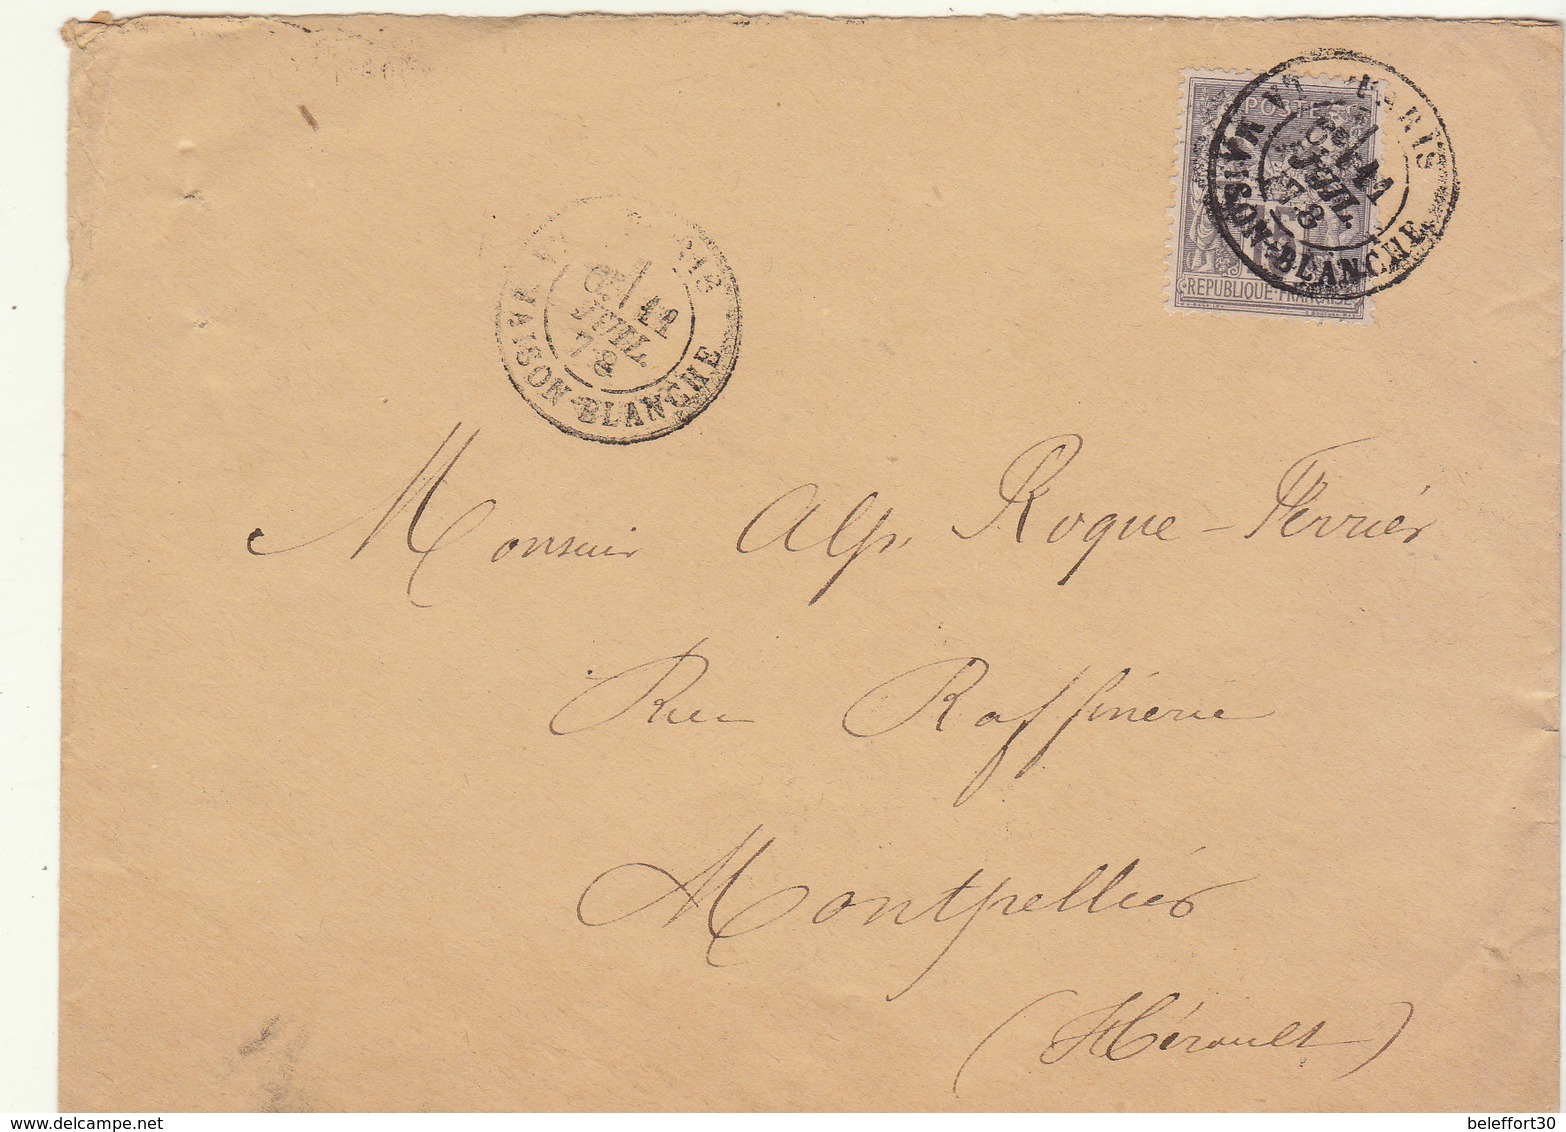 PARIS LA MAISON-BLANCHE
11
JUIL
78
POSTES
REPUBLIQUE FRANÇAISE
MAISON-BLANCHE
11
JUIL
78
Monsieur Alp. Roque-Ferrier
Rue Raffinerie
Montpellier
(Hérault)
beleffort30